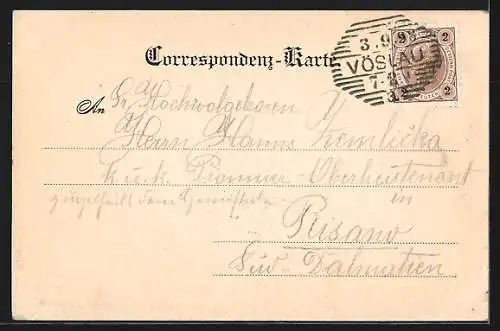 Correspondenz-Karte
3.9.98
VÖSLAU
2 2
2 2
An Sr. Hochwolgeboren
Herrn Hanns Zemlička
k.u.k. Pionnier-Oberlieutenant
zugetheilt dem in
Risano
Süd-Dalmatien